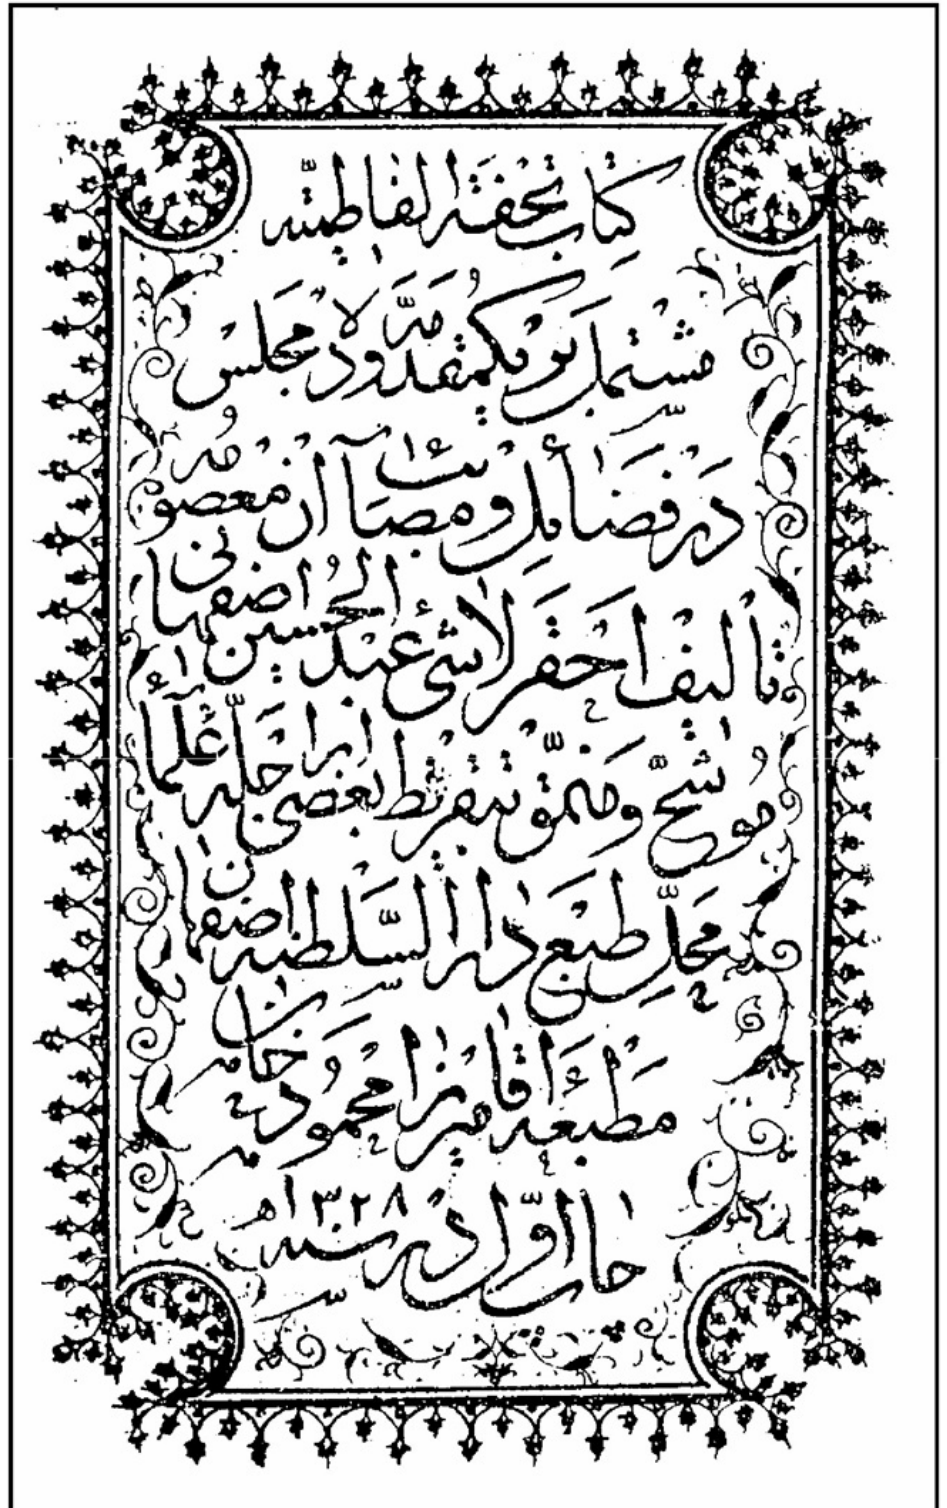 کتاب تحفة الفاطمیّه
مشتمل بر یکمقدّمه و ده مجلس
در فضائل و مصائب آن معصومه
تألیف احقر لاشیء عبد الحسین اصفهانی
موشّح و منمّق بتقریظ بعضی از اجلّه علماء اعلام
محلّ طبع دار السّلطنه اصفهان
مطبعه اقا میرزا محمود خان
چاپ اوّل در سنه ۱۳۲۸